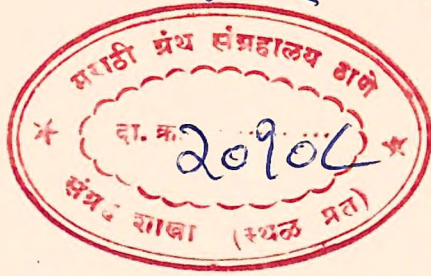 मराठी ग्रंथ संग्रहालय ठाणे
दा. क्र. २०१०८
संग्रह शाखा (स्थळ प्रत)